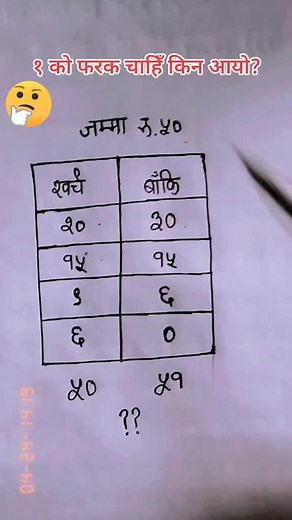 १ को फरक चाहिँ किन आयो?
जम्मा रु.५०
खर्च बाँकि
२० ३०
१५ १५
९ ६
६ ०
५० ५१
??